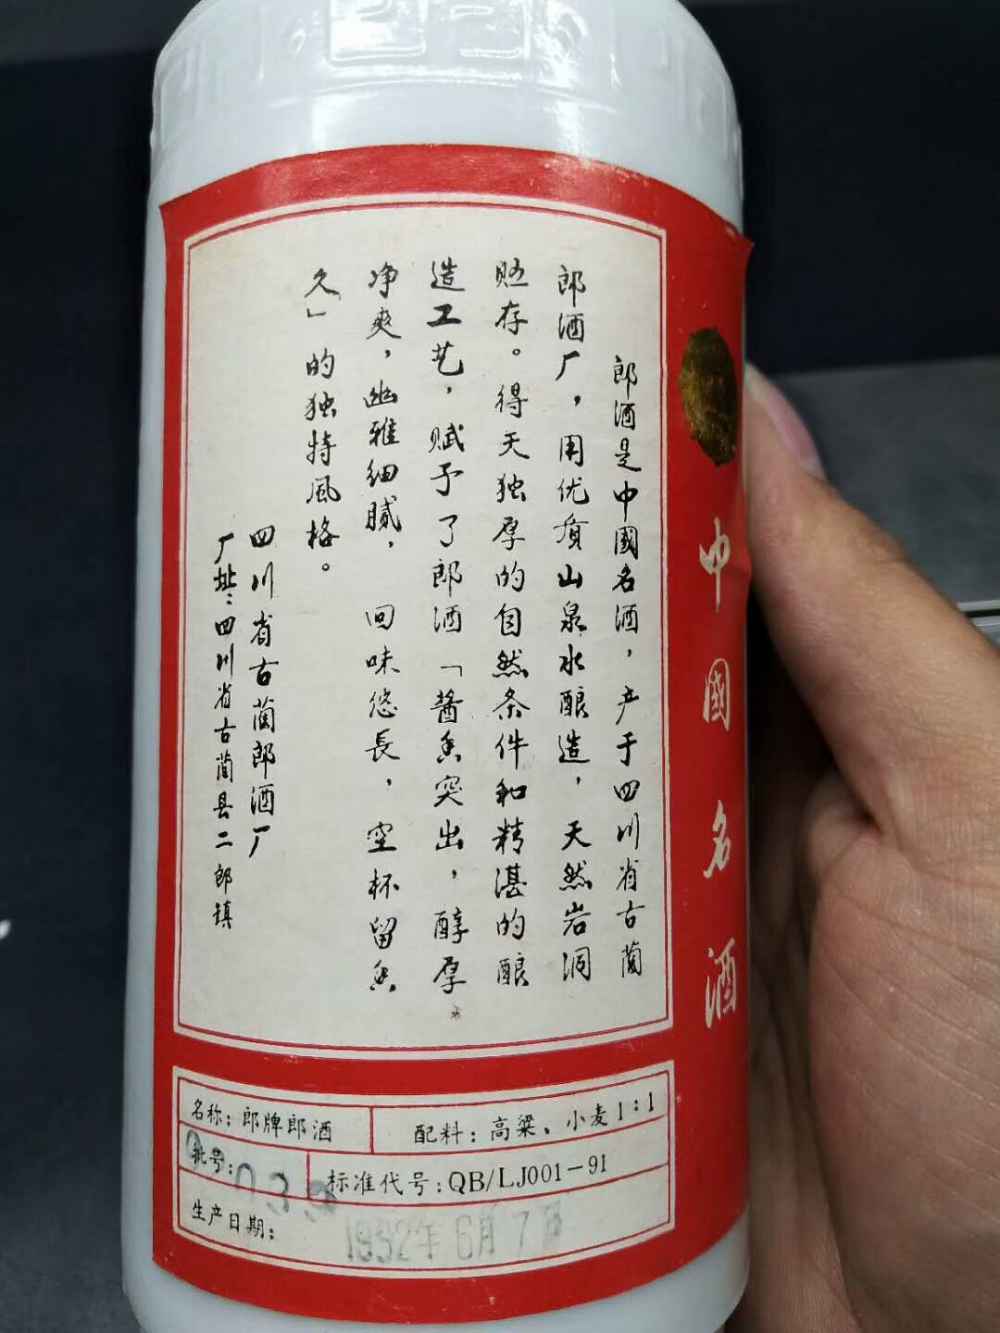 郎酒是中國名酒，产于四川省古蔺
郎酒厂，用优质山泉水酿造，天然岩洞
贮存。得天独厚的自然条件和精湛的酿
造工艺，赋予了郎酒「酱香突出，醇厚
净爽，幽雅细腻，回味悠長，空杯留香
久」的独特风格。
四川省古蔺郎酒厂
厂址：四川省古蔺县二郎镇
中國名酒
名称：郎牌郎酒
配料：高粱、小麦1：1
批号：039
标准代号：QB/LJ001－91
生产日期：1992年6月7日